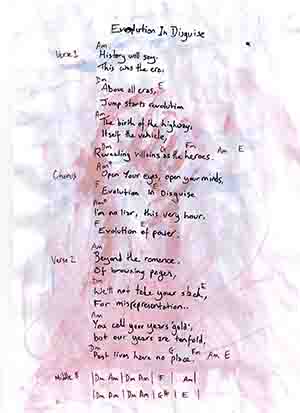 Evolution In Disguise
Am
Verse 1 History will say.
This was the era.
Dm
Above all eras, E
Jump starts revolution
Am
The birth of the highway,
Itself the vehicle,
Dm G Fm Am E
Revealing villains as the heroes.
Am
Chorus Open your eyes, open your minds,
F E
Evolution In Disguise
Am
I'm no liar, this very hour.
F E
Evolution of power.
Am
Verse 2 Beyond the romance.
Of browsing pages,
Dm E
We'll not take your
For misrepresentation..
Am
You call your years gold,
but our years are tenfold,
Dm G Fm Am E
Past lives have no place.
Middle 8 | Dm Am | Dm Am | F | Am |
| Dm Dm | Dm Am | G | E |